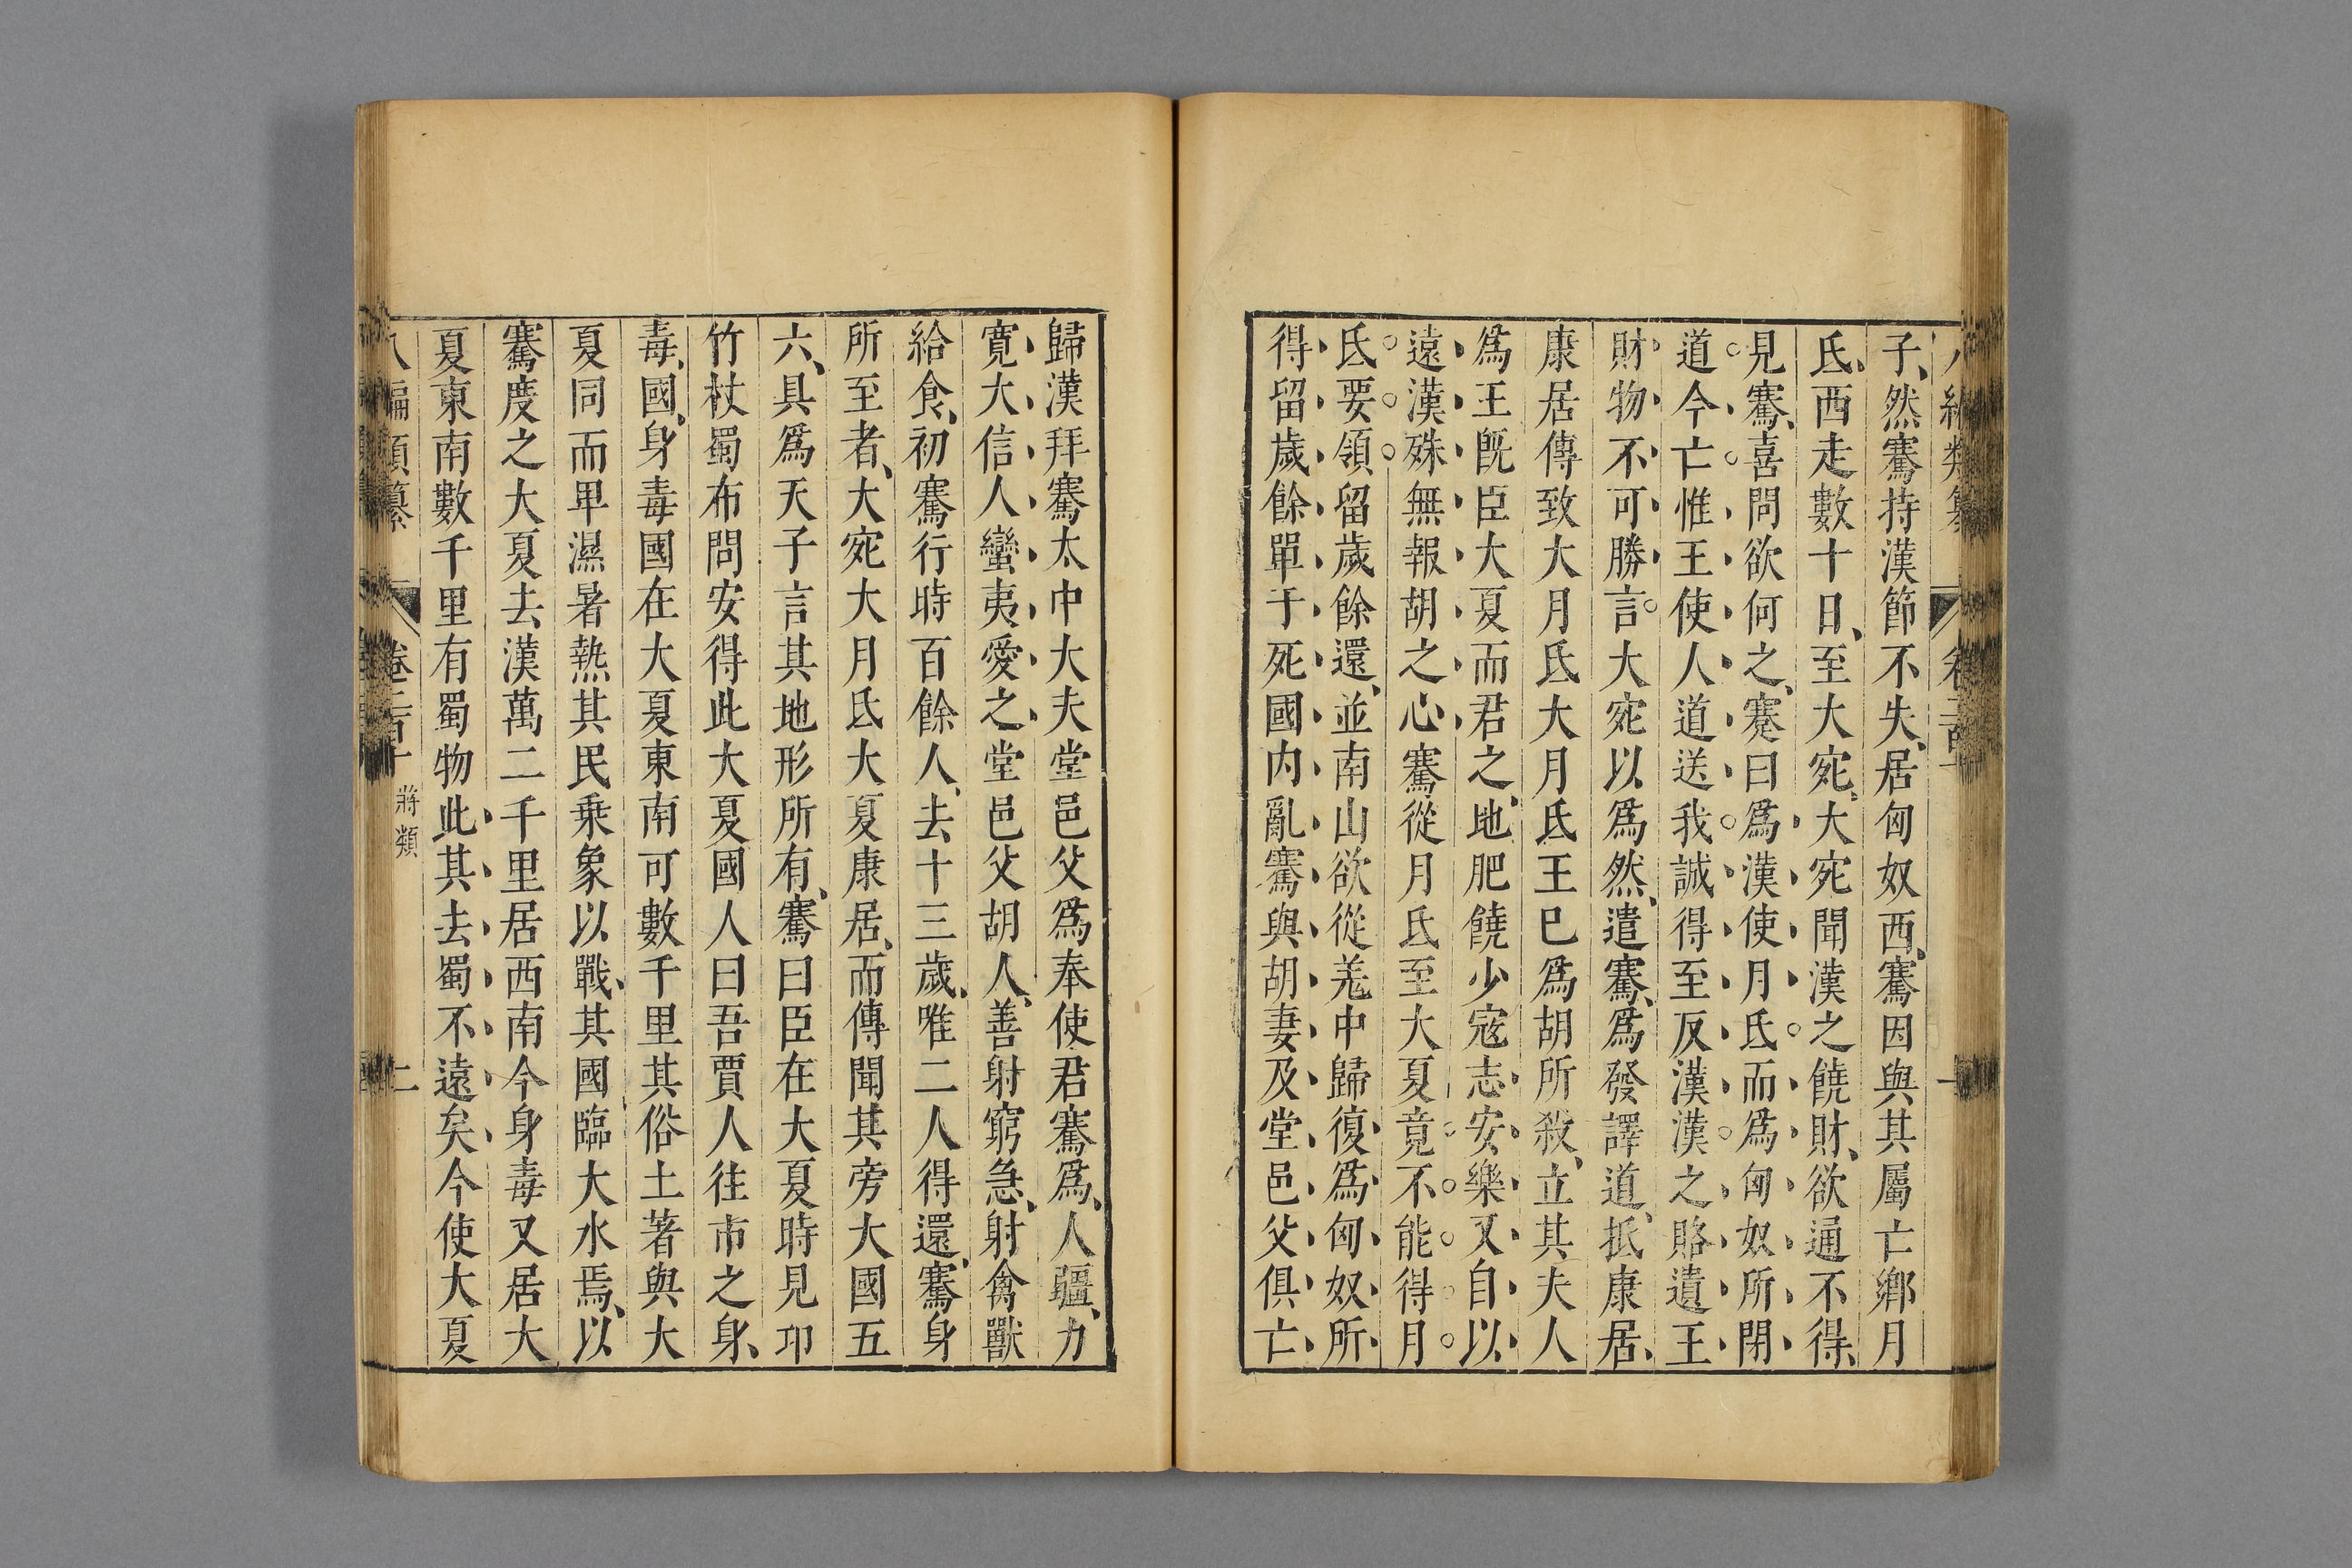 子然騫持漢節不失居匈奴西騫因與其屬亡鄉月
氏西走數十日至大宛大宛聞漢之饒財欲通不得
見騫喜問欲何之騫曰爲漢使月氏而爲匈奴所閉
道今亡惟王使人道送我誠得至反漢漢之賂遺王
財物不可勝言大宛以爲然遣騫爲發譯道抵康居
康居傳致大月氏大月氏王已爲胡所殺立其夫人
爲王旣臣大夏而君之地肥饒少寇志安樂又自以
遠漢殊無報胡之心騫從月氏至大夏竟不能得月
氏要領留歲餘還並南山欲從羌中歸復爲匈奴所
得留歲餘單于死國内亂騫與胡妻及堂邑父俱亡
歸漢拜騫太中大夫堂邑父爲奉使君騫爲人疆力
寛大信人蠻夷愛之堂邑父胡人善射窮急射禽獸
給食初騫行時百餘人去十三歲唯二人得還騫身
所至者大宛大月氏大夏康居而傳聞其旁大國五
六具爲天子言其地形所有騫曰臣在大夏時見卭
竹杖蜀布問安得此大夏國人曰吾賈人往市之身
毒國身毒國在大夏東南可數千里其俗土著與大
夏同而卑濕暑熱其民乘象以戰其國臨大水焉以
騫度之大夏去漢萬二千里居西南今身毒又居大
夏東南數千里有蜀物此其去蜀不遠矣今使大夏
八編類纂 卷二百十 將類 二